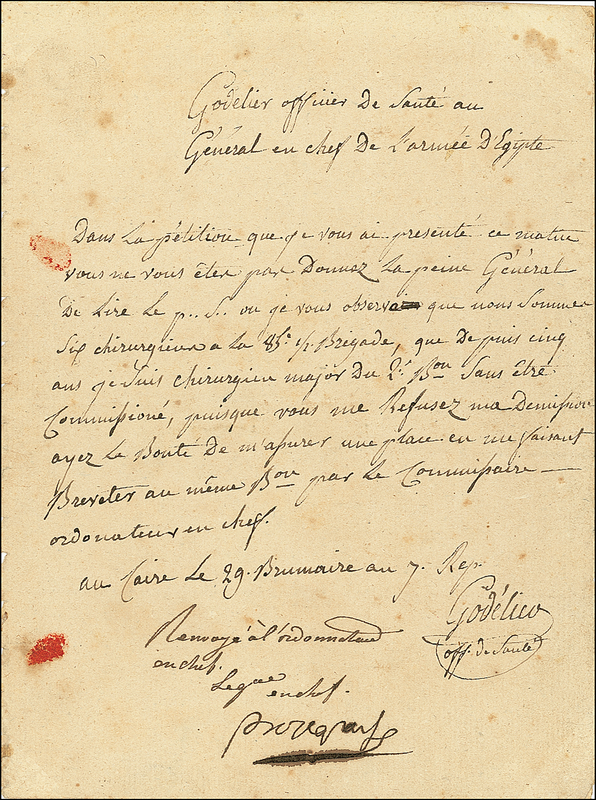 Godelier officier De Santé au
Général en chef De l'armée D'Egipte
Dans La pétition que je vous ai presenté ce matin
vous ne vous êtes pas Donnez La peine Général
De Lire Le p.. S.. ou je vous observai que nous Sommes
Six chirurgiens a la 85e 1/2 Brigade, que Depuis cinq
ans je Suis chirurgien major Du 2e Bon Sans être
Commissioné, puisque vous me Refusez ma Demission
ayez La Bonté De m'assurer une place en me faisant
Breveter au même Bon par Le Commissaire —
ordonateur en chef.
au Caire Le 29. Brumaire an 7. Rep.
Godélier
off. de Santé
Renvoyé à l'ordonnateur
en chef.
en chef.